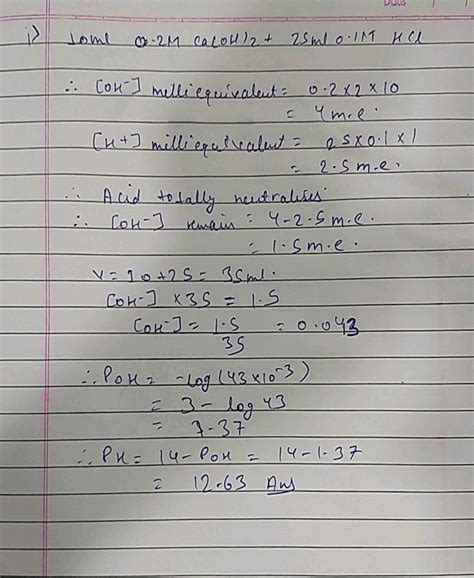 Date
i) 10ml 0.2M Ca(OH)2 + 25ml 0.1M HCl
∴ [OH-] milliequivalent = 0.2x2x10
= 4m.e.
[H+] milliequivalent = 25x0.1x1
= 2.5m.e.
∴ Acid totally neutralises
∴ [OH-] remain = 4-2.5m.e.
= 1.5m.e.
V = 10+25 = 35ml.
[OH-] x35 = 1.5
[OH-] = 1.5/35 = 0.043
∴ POH = -log(43x10-3)
= 3 - log 43
= 1.37
∴ PH = 14-POH = 14-1.37
= 12.63 Ans